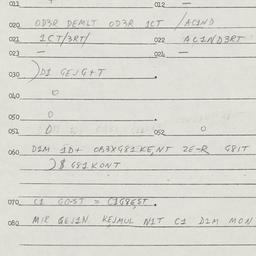 011 + 012 —
020 OD3R DEMLT OD3R 1CT /AC1ND
021 1CT/3RT/ 022 AC1ND3RT
023 — 024 —
030 )D1 GEJG+T
040 0
050 0
051 0 052 0
060 D1M 1D+ OB3XG81KE,NT 2E-R G8IT
)$ G81KONT
070 C1 GOST = C1G8EST
080 MIR GEJ1N KEJMUL N1T C1 D1M MON